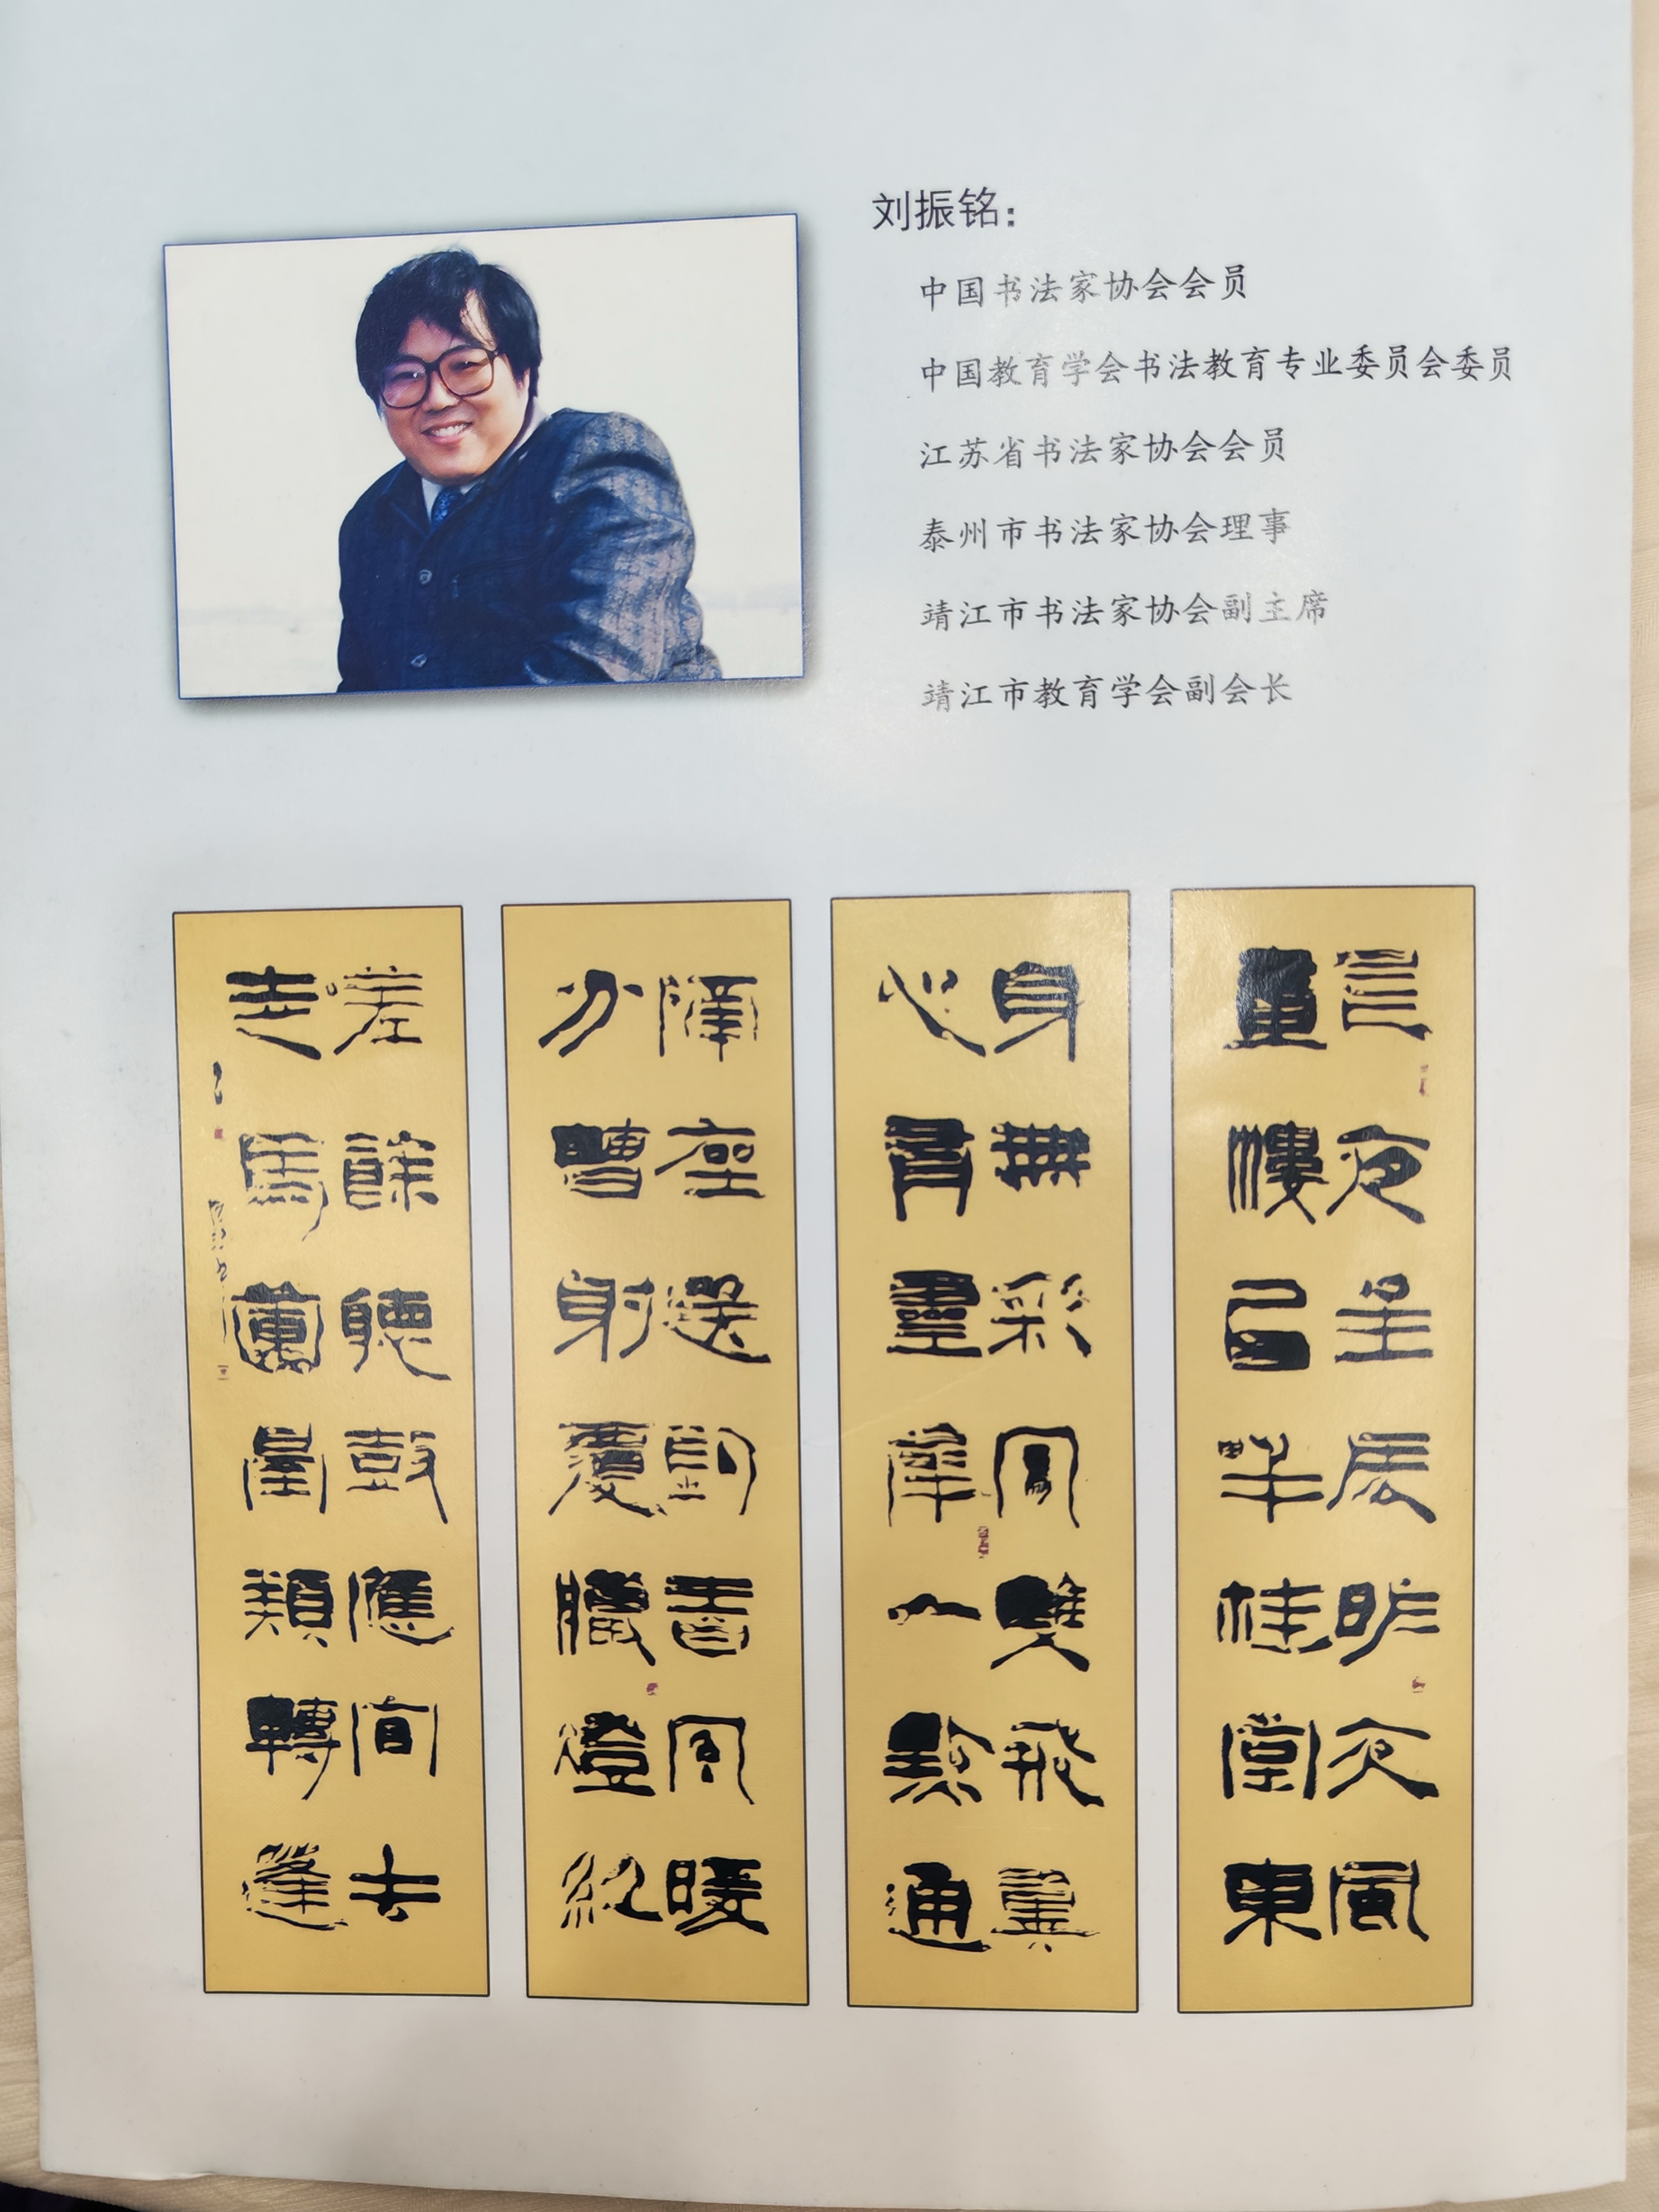 刘振铭：
中国书法家协会会员
中国教育学会书法教育专业委员会委员
江苏省书法家协会会员
泰州市书法家协会理事
靖江市书法家协会副主席
靖江市教育学会副会长
昨夜星辰昨夜風
畫樓西畔桂堂東
身無彩鳳雙飛翼
心有靈犀一點通
隔座送鉤春酒暖
分曹射覆蠟燈紅
嗟餘聽鼓應官去
走馬蘭臺類轉蓬